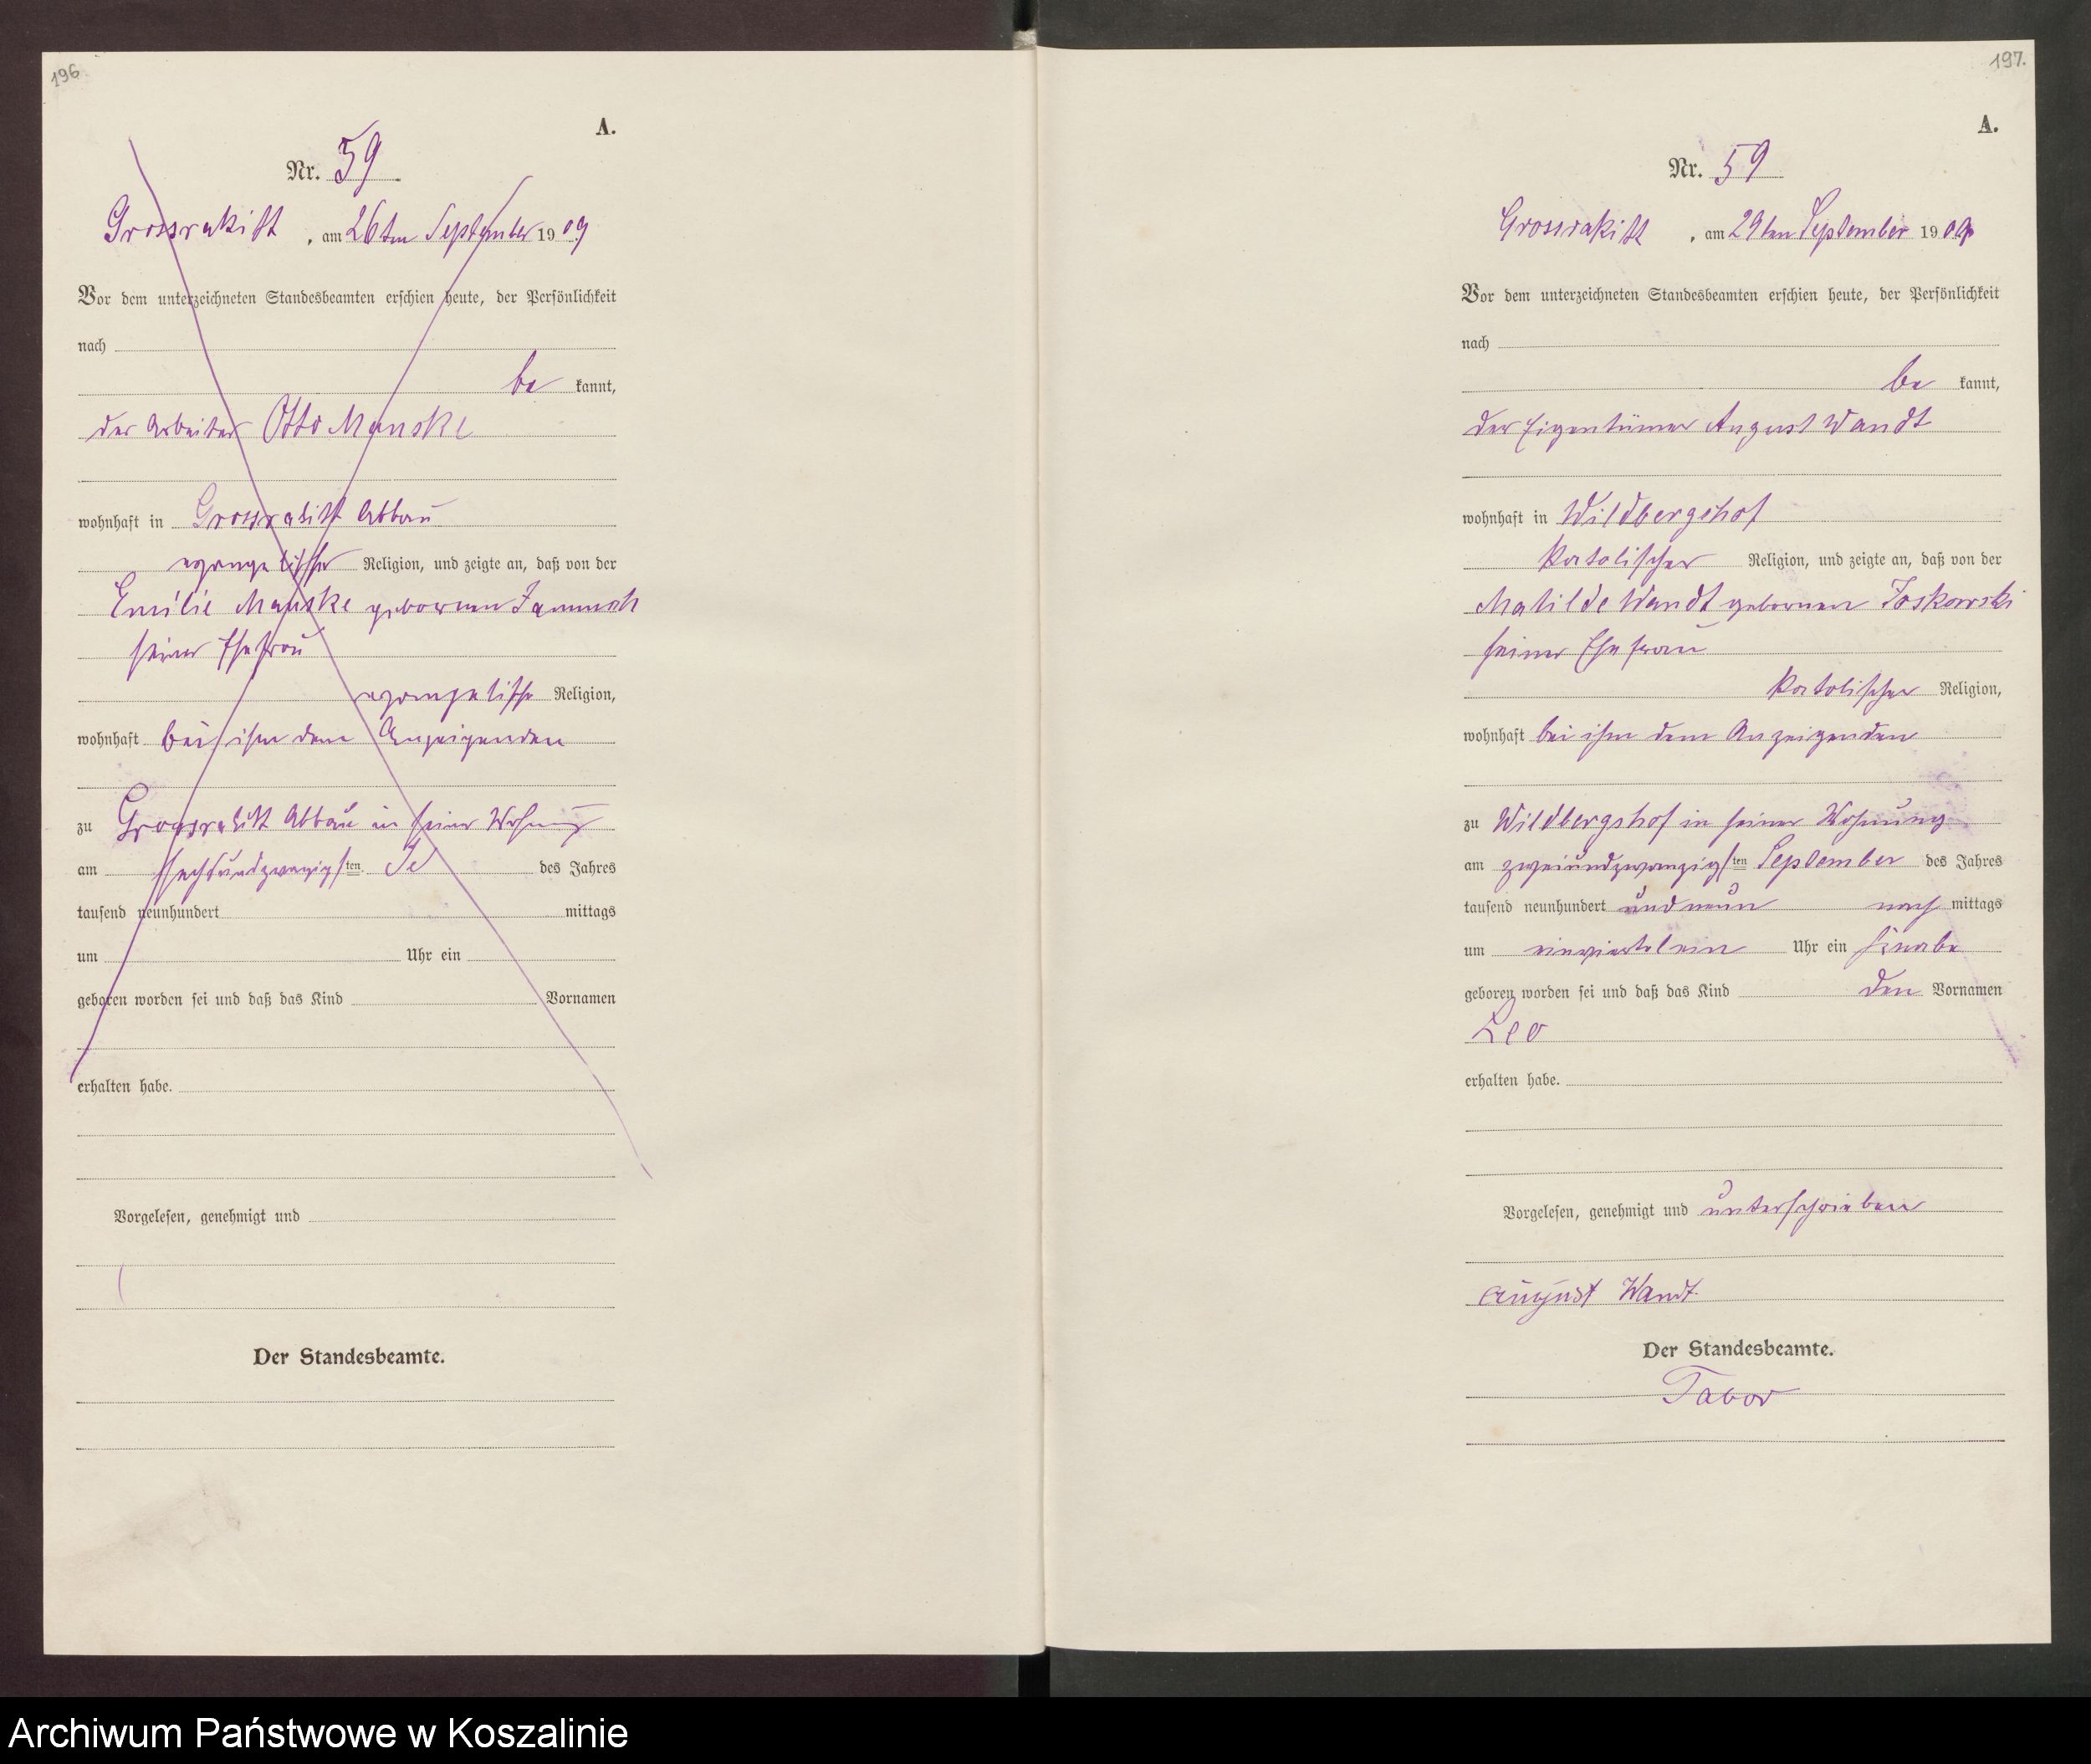 196
A.
Nr. 59
Grossrakitt, am 26ten September 1909
Vor dem unterzeichneten Standesbeamten erschien heute, der Persönlichkeit
nach
be kannt,
der Arbeiter Otto Manske
wohnhaft in Grossrakitt Abbau
evangelischer Religion, und zeigte an, daß von der
Emilie Manske gebornen
seiner Ehefrau
evangelische Religion,
wohnhaft bei ihm dem Anzeigenden
zu Grossrakitt Abbau in seiner Wohnung
am sechsundzwanzigsten Se des Jahres
tausend neunhundert mittags
um Uhr ein
geboren worden sei und daß das Kind Vornamen
erhalten habe.
Vorgelesen, genehmigt und
Der Standesbeamte.
197.
A.
Nr. 59
Grossrakitt, am 29ten September 1909
Vor dem unterzeichneten Standesbeamten erschien heute, der Persönlichkeit
nach
be kannt,
der Eigentümer August Wandt
wohnhaft in Wildbergshof
katolischer Religion, und zeigte an, daß von der
Matilde Wandt gebornen Joskowski
seiner Ehefrau
katolischer Religion,
wohnhaft bei ihm dem Anzeigenden
zu Wildbergshof in seiner Wohnung
am zweiundzwanzigsten September des Jahres
tausend neunhundert und neun nach mittags
um einviertel ein Uhr ein Knabe
geboren worden sei und daß das Kind den Vornamen
Leo
erhalten habe.
Vorgelesen, genehmigt und unterschrieben
August Wandt.
Der Standesbeamte.
Tabor
Archiwum Państwowe w Koszalinie